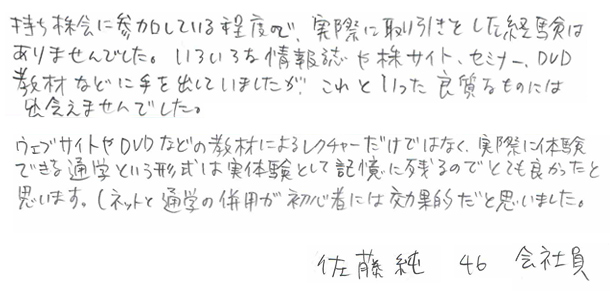 持ち株会に参加している程度で、実際に取り引きとした経験は
ありませんでした。いろいろな情報誌や株サイト、セミナー、DVD
教材などに手を出していましたが、これといった良質なものには
出会えませんでした。
ウェブサイトやDVDなどの教材によるレクチャーだけではなく、実際に体験
できる通学という形式は実体験として記憶に残るのでとても良かったと
思います。(ネットと通学の併用が初心者には効果的だと思いました。
佐藤純 46 会社員